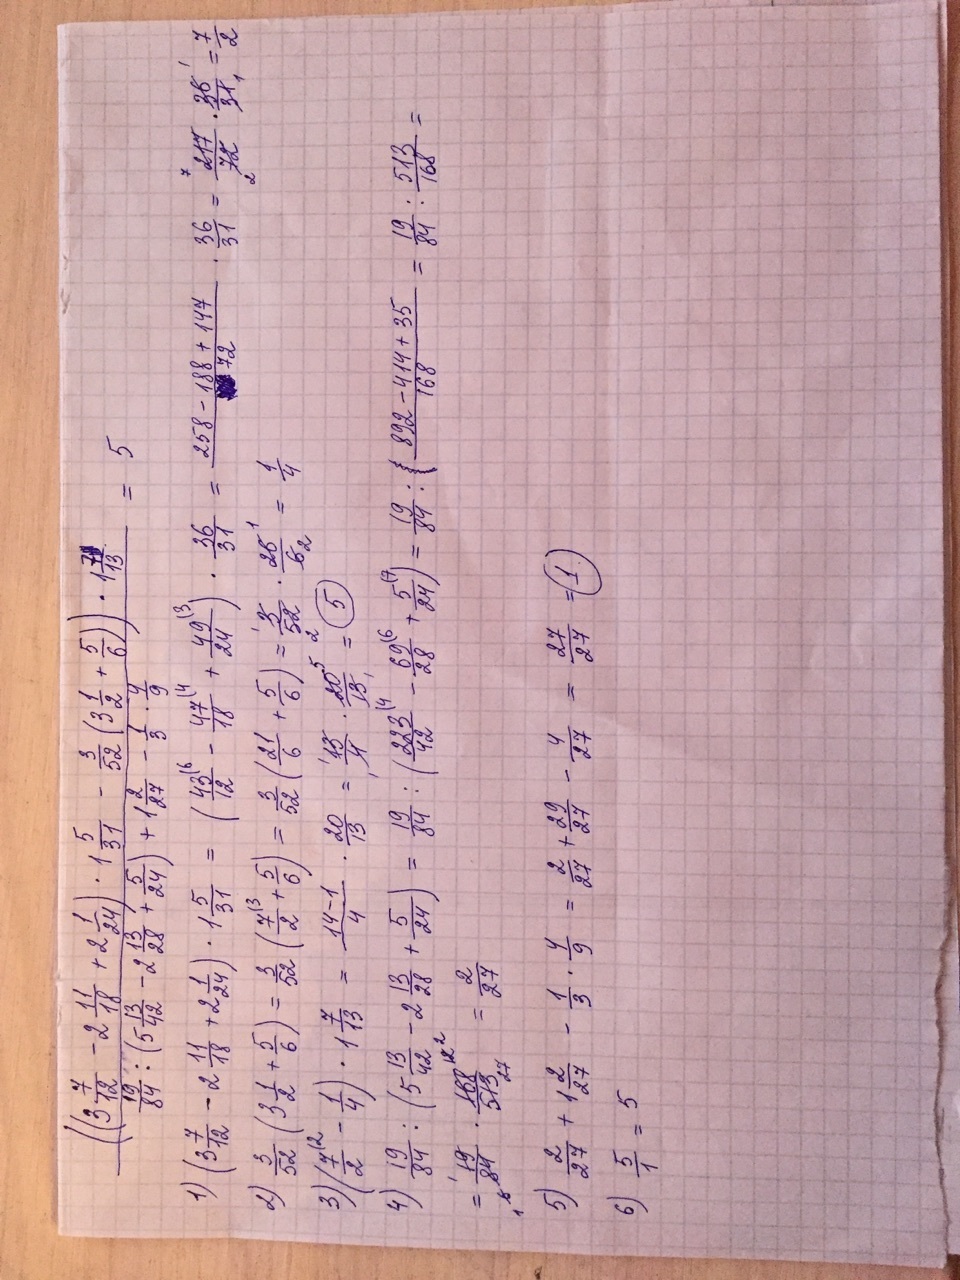 ((3 7/12 - 2 11/18 + 2 1/24) · 1 5/31 - 3/52 (3 1/2 + 5/6)) · 1 7/13 = 5
19/84 : (5 13/42 - 2 13/28 + 5/24) + 1 2/27 - 1/3 · 4/9
1) (3 7/12 - 2 11/18 + 2 1/24) · 1 5/31 = (43/12 (6 - 47/18 (4 + 49/24 (3) · 36/31 = 258 - 188 + 147/72 · 36/31 = 217/72 · 36/31 = 7/2
2) 3/52 (3 1/2 + 5/6) = 3/52 (7/2 (3 + 5/6) = 3/52 (21/6 + 5/6) = 3/52 · 26/6 = 1/4
3) (7/2 (2 - 1/4) · 1 7/13 = 14-1/4 · 20/13 = 13/4 · 20/13 = 5
4) 19/84 : (5 13/42 - 2 13/28 + 5/24) = 19/84 : (223/42 (4 - 69/28 (6 + 5/24 (7) = 19/84 : 892 - 414 + 35/168 = 19/84 : 513/168 =
= 19/84 · 168/513 = 2/27
5) 2/27 + 1 2/27 - 1/3 · 4/9 = 2/27 + 29/27 - 4/27 = 27/27 = 1
6) 5/1 = 5